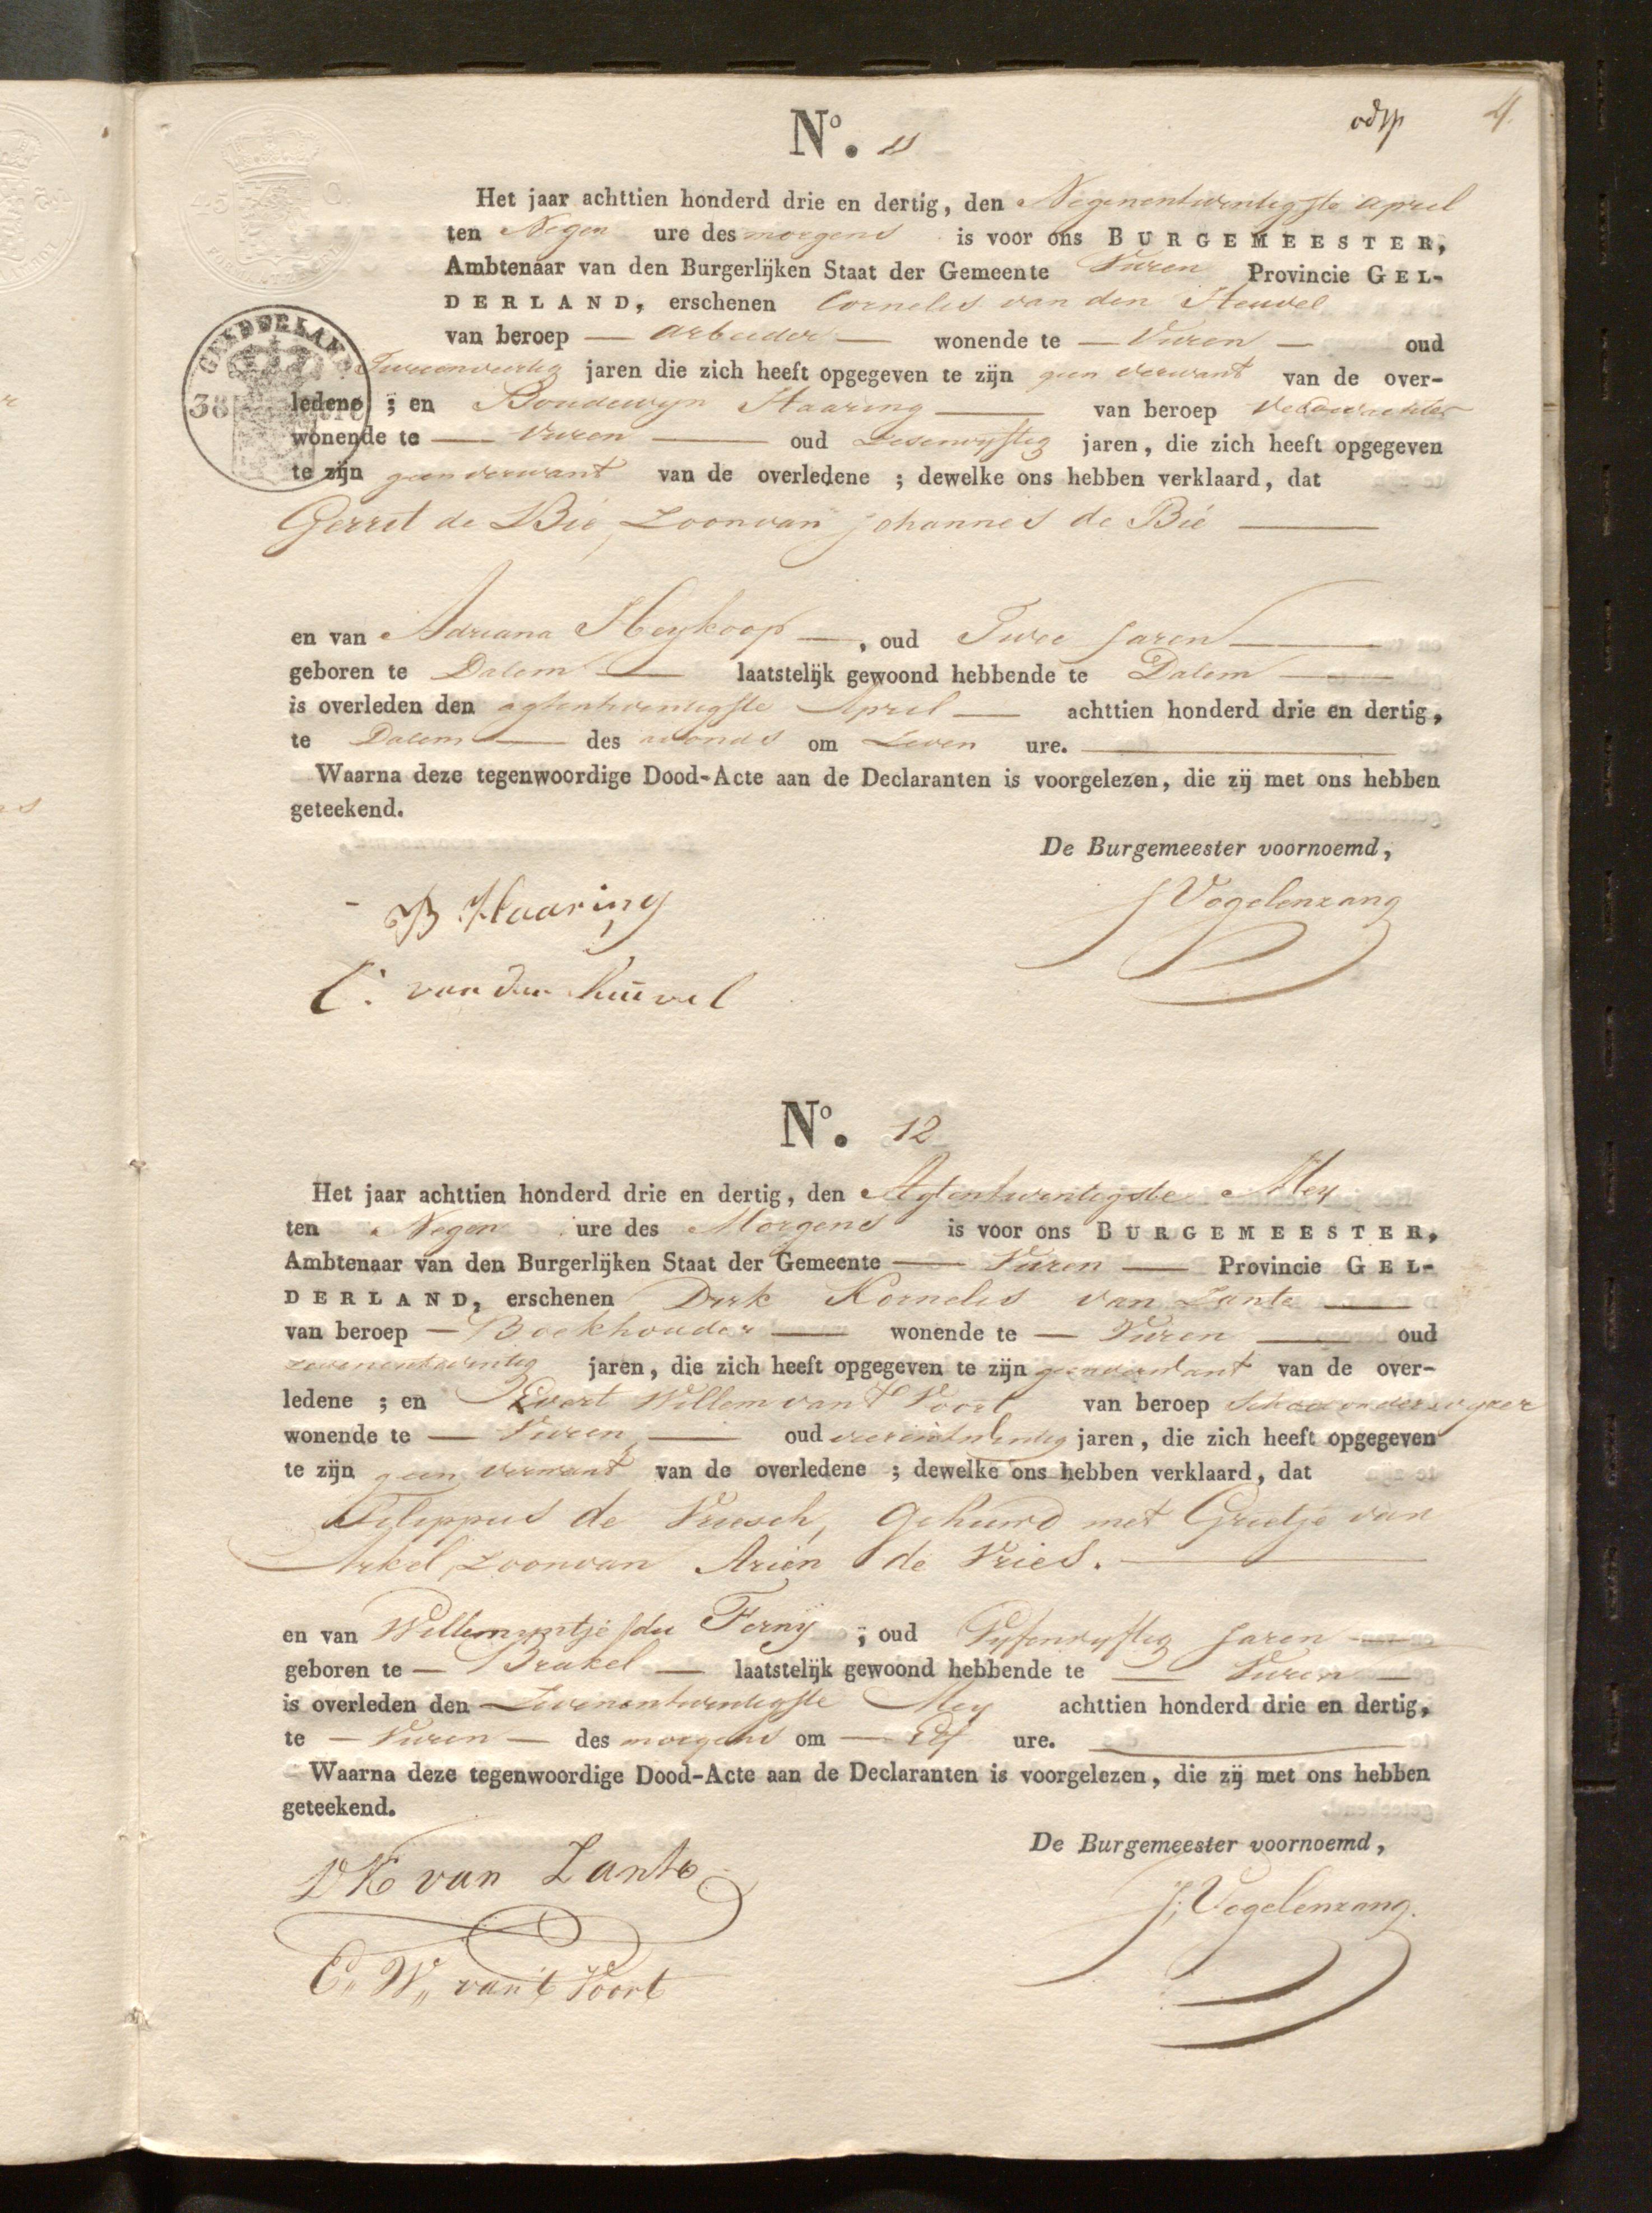 4.
N.o 11
Het jaar achttien honderd drie en dertig, den Negenentwentigste April
ten Negen ure des morgens is voor ons BURGEMEESTER,
Ambtenaar van den Burgerlijken Staat der Gemeente Vuren Provincie GEL-
DERLAND, erschenen Cornelis van den Heuvel
van beroep — arbeider — wonende te — Vuren — oud
jaren die zich heeft opgegeven te zijn geen verwant van de over-
ledene ; en Boudewyn Haaring — van beroep Veldwachter
wonende te — Vuren — oud Zesenvyftig jaren, die zich heeft opgegeven
te zijn geen verwant van de overledene ; dewelke ons hebben verklaard, dat
Gerrit de Bie, Zoon van Johannes de Bie —
en van Adriana Heykoop —, oud Twee Jaren —
geboren te Dalem — laatstelijk gewoond hebbende te Dalem —
is overleden den agtentwentigste April — achttien honderd drie en dertig,
te Dalem — des avonds om Zeven ure. —
Waarna deze tegenwoordige Dood-Acte aan de Declaranten is voorgelezen, die zij met ons hebben
geteekend.
De Burgemeester voornoemd,
J Vogelenzang
B Haaring
C. van den heuvel
GELDERLAND
38
N.o 12
Het jaar achttien honderd drie en dertig, den Agtentwentigste Mey
ten Negen ure des Morgens is voor ons BURGEMEESTER,
Ambtenaar van den Burgerlijken Staat der Gemeente — Vuren — Provincie GEL-
DERLAND, erschenen Dirk Kornelis van Zante —
van beroep — Boekhouder — wonende te — Vuren — oud
zevenentwintig jaren, die zich heeft opgegeven te zijn geen verwant van de over-
ledene ; en Evert Willem van t Voort van beroep Schoolonderwyzer
wonende te — Vuren — oud vierentwintig jaren, die zich heeft opgegeven
te zijn geen verwant van de overledene ; dewelke ons hebben verklaard, dat
Filippus de Vriesch, Gehuwd met Grietje van
Arkel, Zoon van Arien de Vries. —
en van Willemyntje du Ferny ; oud Vyfenvyftig Jaren —
geboren te — Brakel — laatstelijk gewoond hebbende te — Vuren —
is overleden den Zevenentwentigste Mey achttien honderd drie en dertig,
te — Vuren — des morgens om — Elf ure. —
Waarna deze tegenwoordige Dood-Acte aan de Declaranten is voorgelezen, die zij met ons hebben
geteekend.
De Burgemeester voornoemd,
J. Vogelenzang.
DK van Zante
E. W. van 't Voort